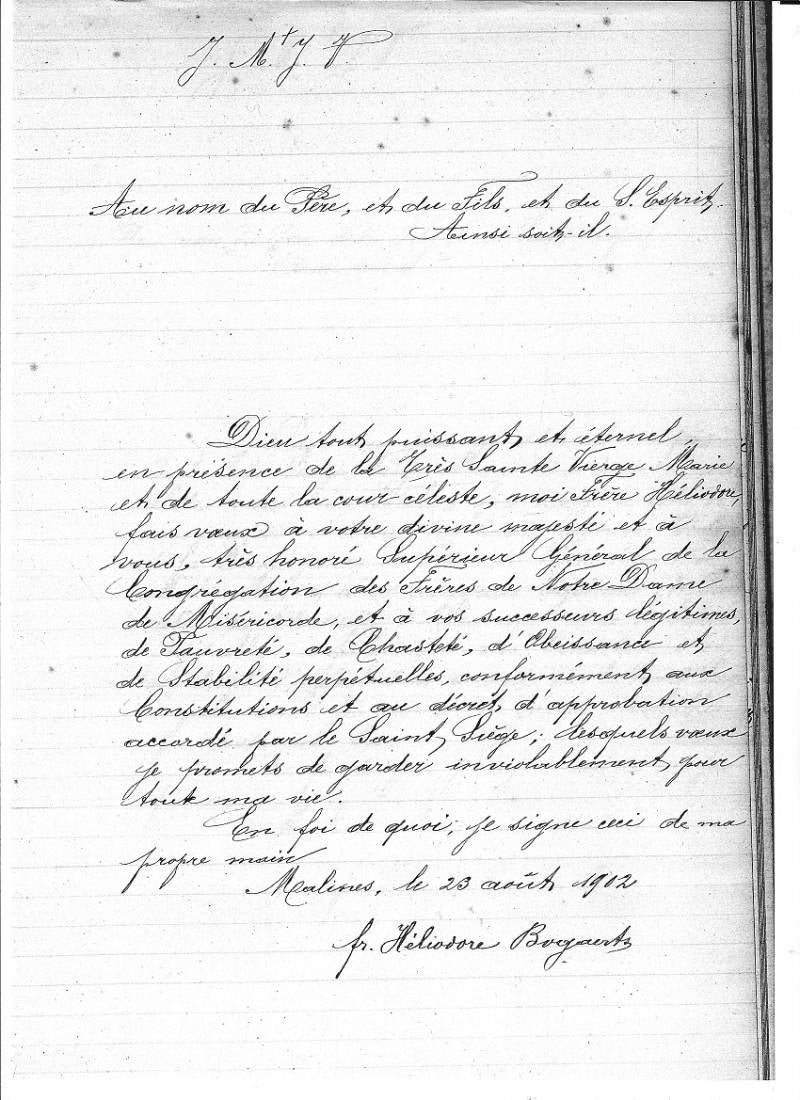 J. M. † J. F.
Au nom du Père, et du Fils, et du S. Esprit.
Ainsi soit-il.
Dieu tout puissant et éternel,
en présence de la Très Sainte Vierge Marie
et de toute la cour céleste, moi Frère Héliodore,
fais vœux à votre divine majesté et à
vous, très honoré Supérieur Général de la
Congrégation des Frères de Notre Dame
de Miséricorde, et à vos successeurs légitimes,
de Pauvreté, de Chasteté, d'Obeissance et
de Stabilité perpétuelles, conformément aux
Constitutions et au décret d'approbation
accordé par le Saint Siège; lesquels vœux
je promets de garder inviolablement pour
toute ma vie.
En foi de quoi, je signe ceci de ma
propre main
Malines, le 23 août 1902
fr. Héliodore Bogaerts